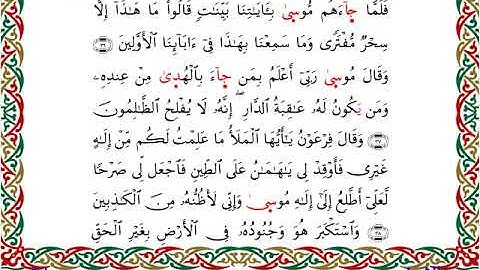 فَلَمَّا جَآءَهُم مُّوسىٰ بِـَٔايَـٰتِنَا بَيِّنَـٰتٍ قَالُواْ مَا هَـٰذَآ إِلَّا
سِحْرٌ مُّفْتَرًى وَمَا سَمِعْنَا بِهَـٰذَا فِىٓ ءَابَآئِنَا ٱلْأَوَّلِينَ ٣٦
وَقَالَ مُوسىٰ رَبِّىٓ أَعْلَمُ بِمَن جَآءَ بِٱلْهُدىٰ مِنْ عِندِهِۦ
وَمَن يَكُونُ لَهُۥ عَـٰقِبَةُ ٱلدَّارِ ۖ إِنَّهُۥ لَا يُفْلِحُ ٱلظَّـٰلِمُونَ
٣٧ وَقَالَ فِرْعَوْنُ يَـٰٓأَيُّهَا ٱلْمَلَأُ مَا عَلِمْتُ لَكُم مِّنْ إِلَـٰهٍ
غَيْرِى فَأَوْقِدْ لِى يَـٰهَـٰمَـٰنُ عَلَى ٱلطِّينِ فَٱجْعَل لِّى صَرْحًا
لَّعَلِّىٓ أَطَّلِعُ إِلَىٰٓ إِلَـٰهِ مُوسىٰ وَإِنِّى لَأَظُنُّهُۥ مِنَ ٱلْكَـٰذِبِينَ
٣٨ وَٱسْتَكْبَرَ هُوَ وَجُنُودُهُۥ فِى ٱلْأَرْضِ بِغَيْرِ ٱلْحَقِّ